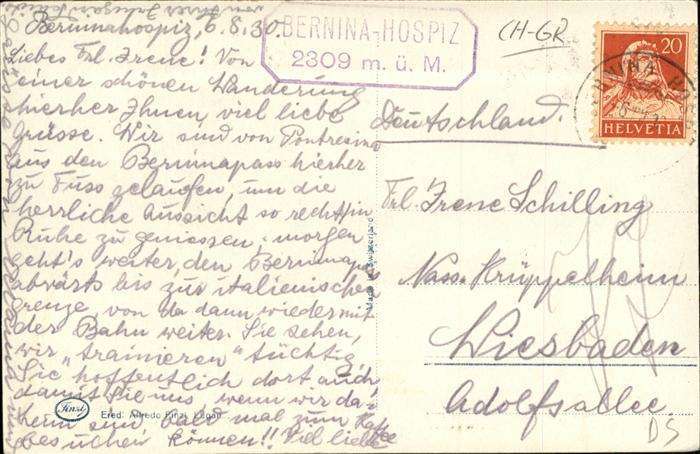 Berninahospiz, 6.8.30.
Liebes Frl. Irene! Von
einer schönen Wanderung
hierher Ihnen viel liebe
Grüsse. Wir sind von Pontresina
aus den Berninapass hierher
zu Fuss gelaufen, um die
herrliche Aussicht so recht in
Ruhe zu geniessen. morgen
geht's weiter, den Berninapass
abwärts bis zur italienischen
grenze von da dann wieder mit
der Bahn weiter. Sie sehen,
wir „trainieren" tüchtig,
Sie hoffentlich dort auch,
damit Sie uns, wenn wir da-
heim sind bald mal zum Kaffee
besuchen können!! Viel liebe
BERNINA-HOSPIZ
2309 m. ü. M.
CH-GR
20
HELVETIA
Deutschland.
Frl. Irene Schilling
Nass. Krüppelheim
Wiesbaden
Adolfsallee.
DS
Made in Switzerland
Finzi
Ered. Alfredo Finzi, Lugano